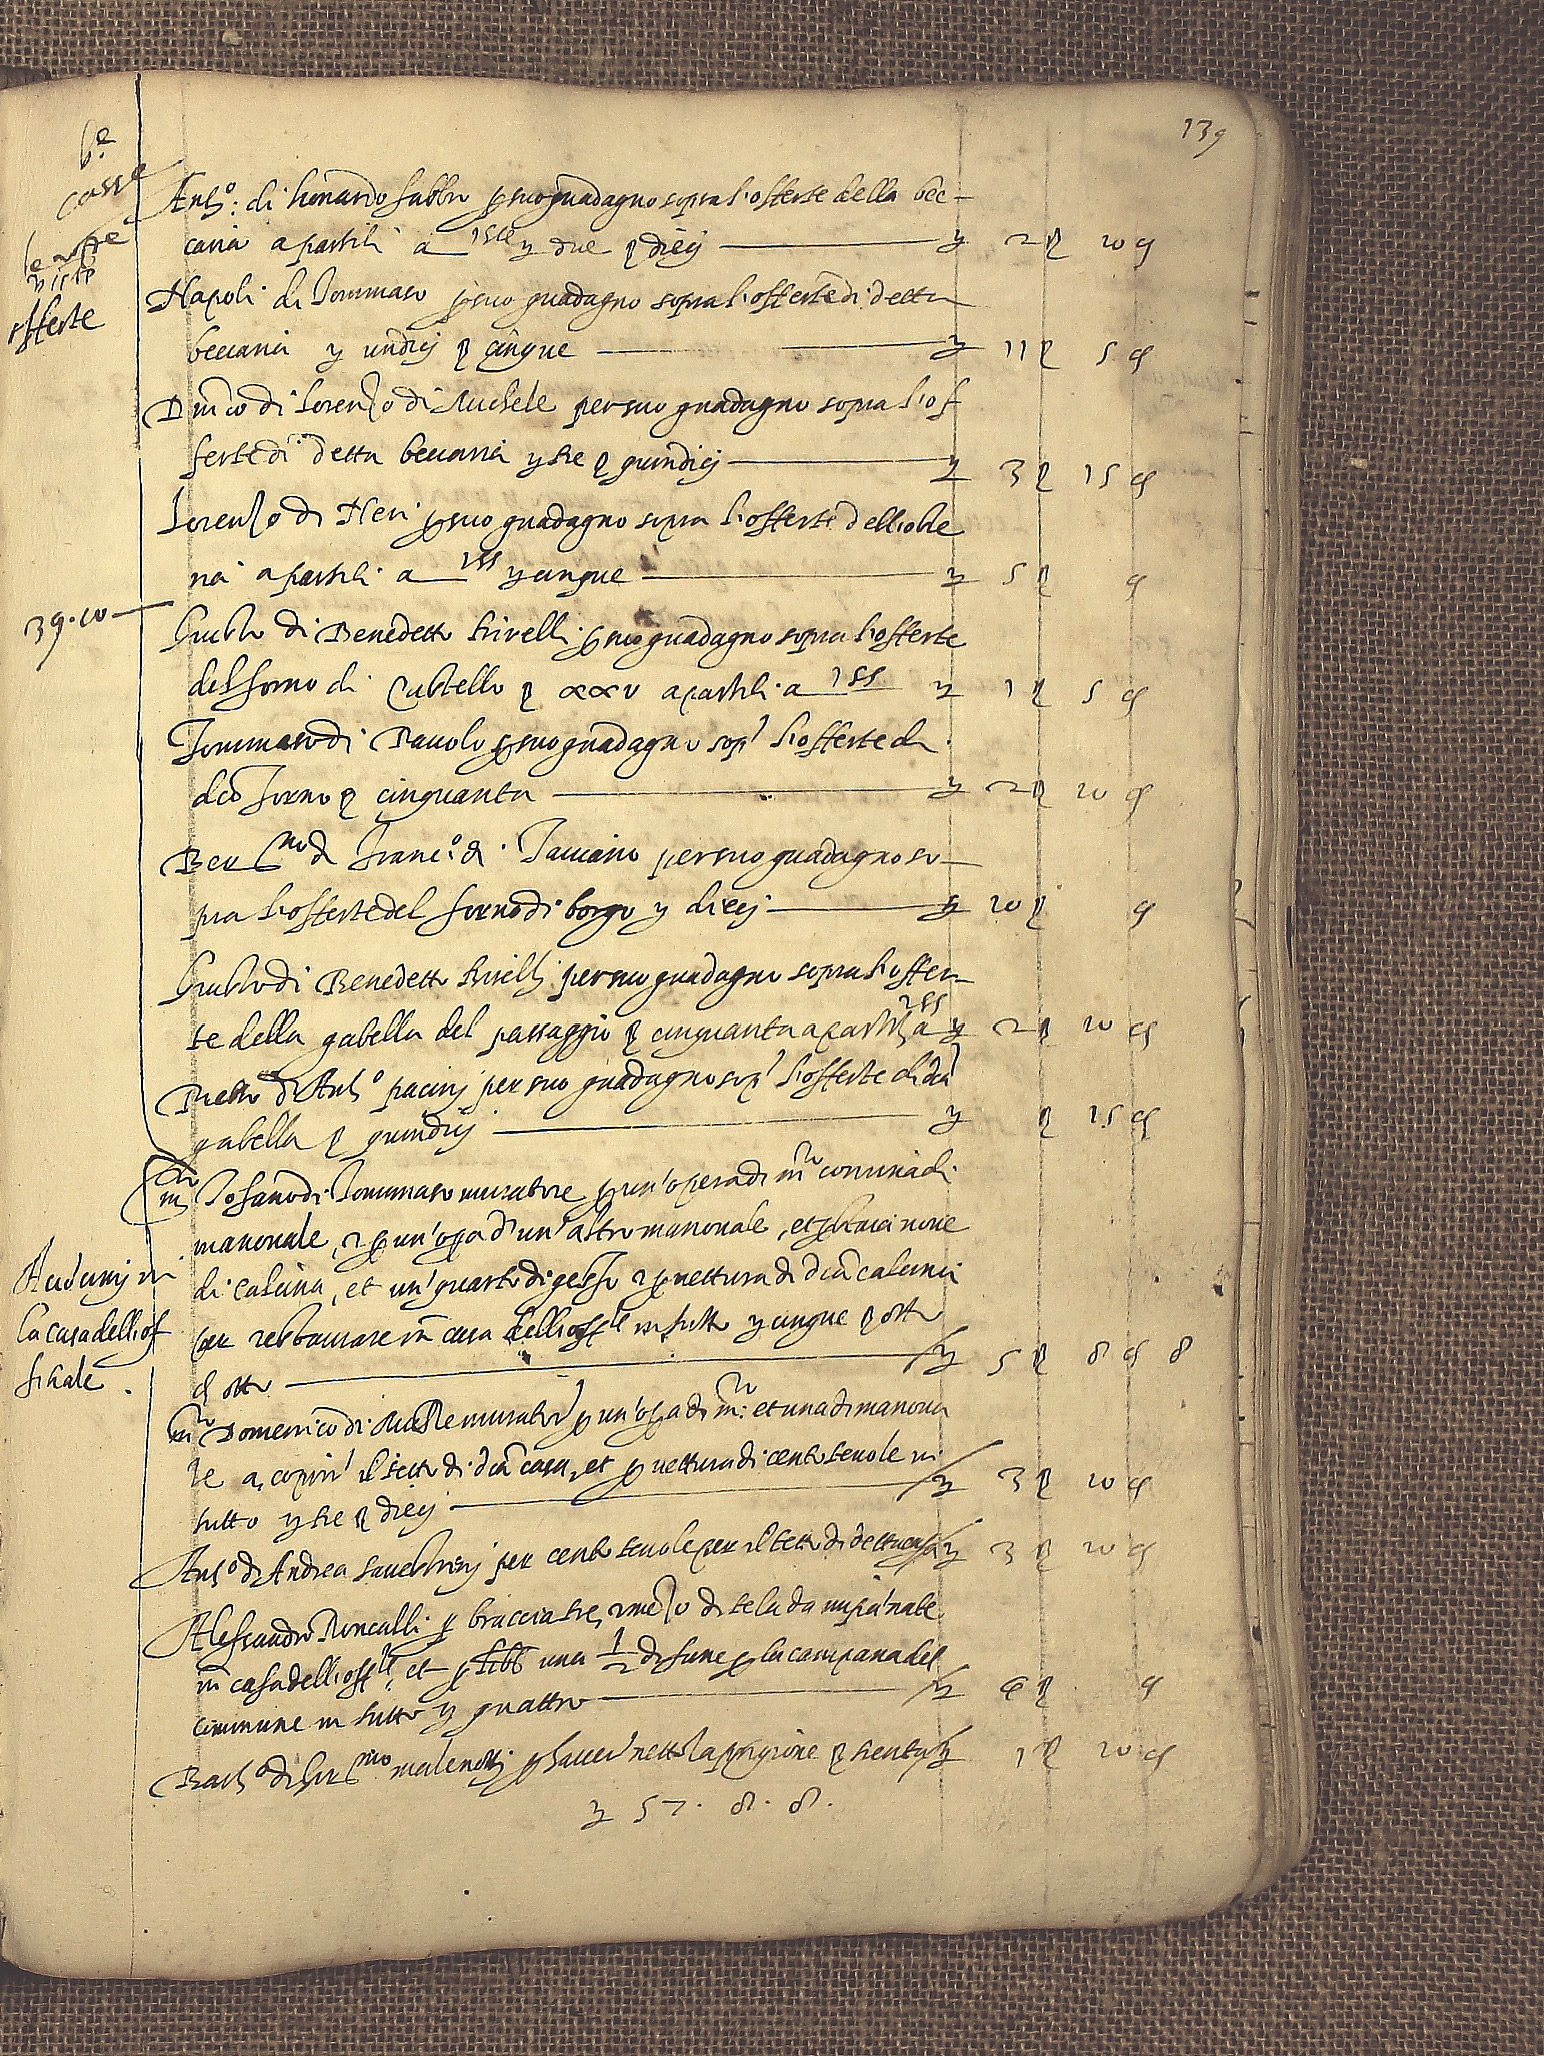 139
casse
offerte
Ant.º: di Lionardo fabbro p suo guadagno sopra l'offerte della bec-
caria a partiti a y due q dieci y 2 q 10 q
Napoli di Tommaso p suo guadagno sopra l'offerte di detta
beccaria y undici q cinque y 11 q 5 q
Dm̃co di Lorenzo di Michele per suo guadagno sopra l'of
ferte di detta beccaria y tre q quindici y 3 q 15 q
Lorenzo di Neri p suo guadagno sopra l'offerte dell'oste
ria a partiti a 155 y cinque y 5 q q
39.10
Giusto di Benedetto Crivelli p suo guadagno sopra l'offerte
del forno di Castello q xxv a partiti a 155 y 1 q 5 q
Tommaso di Pauolo p suo guadagno sop.ª l'offerte di
dcõ forno q cinquanta y 2 q 10 q
di Franc.º di per suo guadagno so-
pra l'offerte del forno di borgo y dieci y 10 q q
Giusto di Benedetto Crivelli per suo guadagno sopra l'offer-
te della gabella del passaggio q cinquanta a partiti a 155 y 2 q 10 q
di Ant.º pacini per suo guadagno sop.ª l'offerte di dcã
gabella q quindici y q 15 q
di Tommaso muratore p un'opera di
manouale, e p un'opa d'un'altro manouale, et p staia noue
di calcina, et un'quarto di gesso e p uettura di dcã calcina
per in casa dell'off.le in tutto y cinque q otto
q otto y 5 q 8 q 8
la casa dell'of
fitiale.
m.º Domenico di muratore p un'opa di m.º: et una di manoua
le a coprir' il tetto di dcã casa, et p uettura di cento teuole in
tutto y tre q dieci y 3 q 10 q
Ant.º di Andrea per cento teuole per il tetto di detta casa y 3 q 10 q
Alessandro Roncalli p braccia tre, e mezo di tela da impannate
in casa dell'off.le, et p libb una 1/2 di fune p la campana del
commune in tutto y quattro y 4 q q
p hauer' netto la prigione q trenta y 1 q 10 q
y 57. 8. 8.